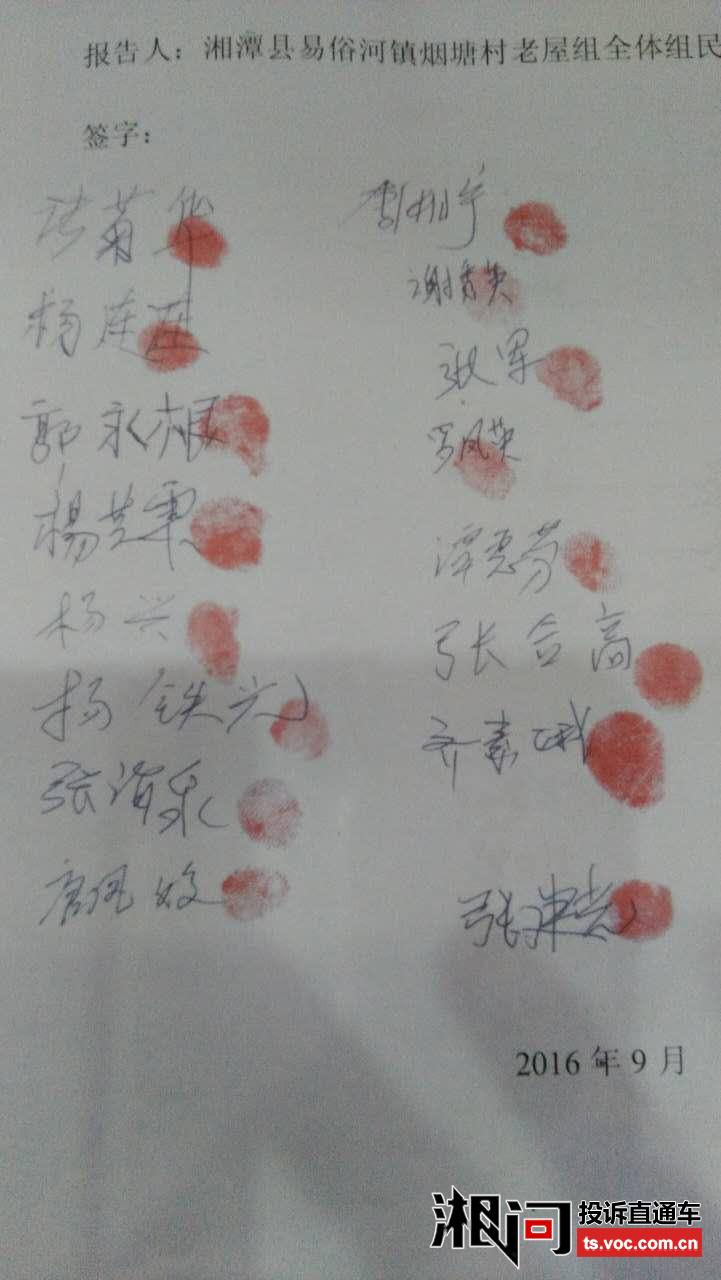 报告人：湘潭县易俗河镇烟塘村老屋组全体组民
签字：
菊华
谢秀英
杨连
张军
郭永根
罗凤英
杨芝
谭惠芳
杨兴
张合高
杨铁光
齐素娥
张海泉
唐佩姣
张津光
2016 年 9 月
湘问 投诉直通车
ts.voc.com.cn